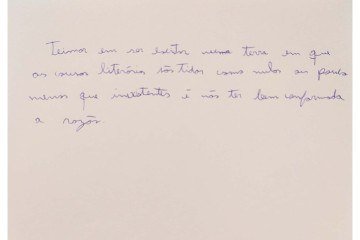 Teimar em ser escritor numa terra em que
as coisas literárias são tidas como nulas ou pouco
menos que inexistentes é não ter bem conformada
a razão.